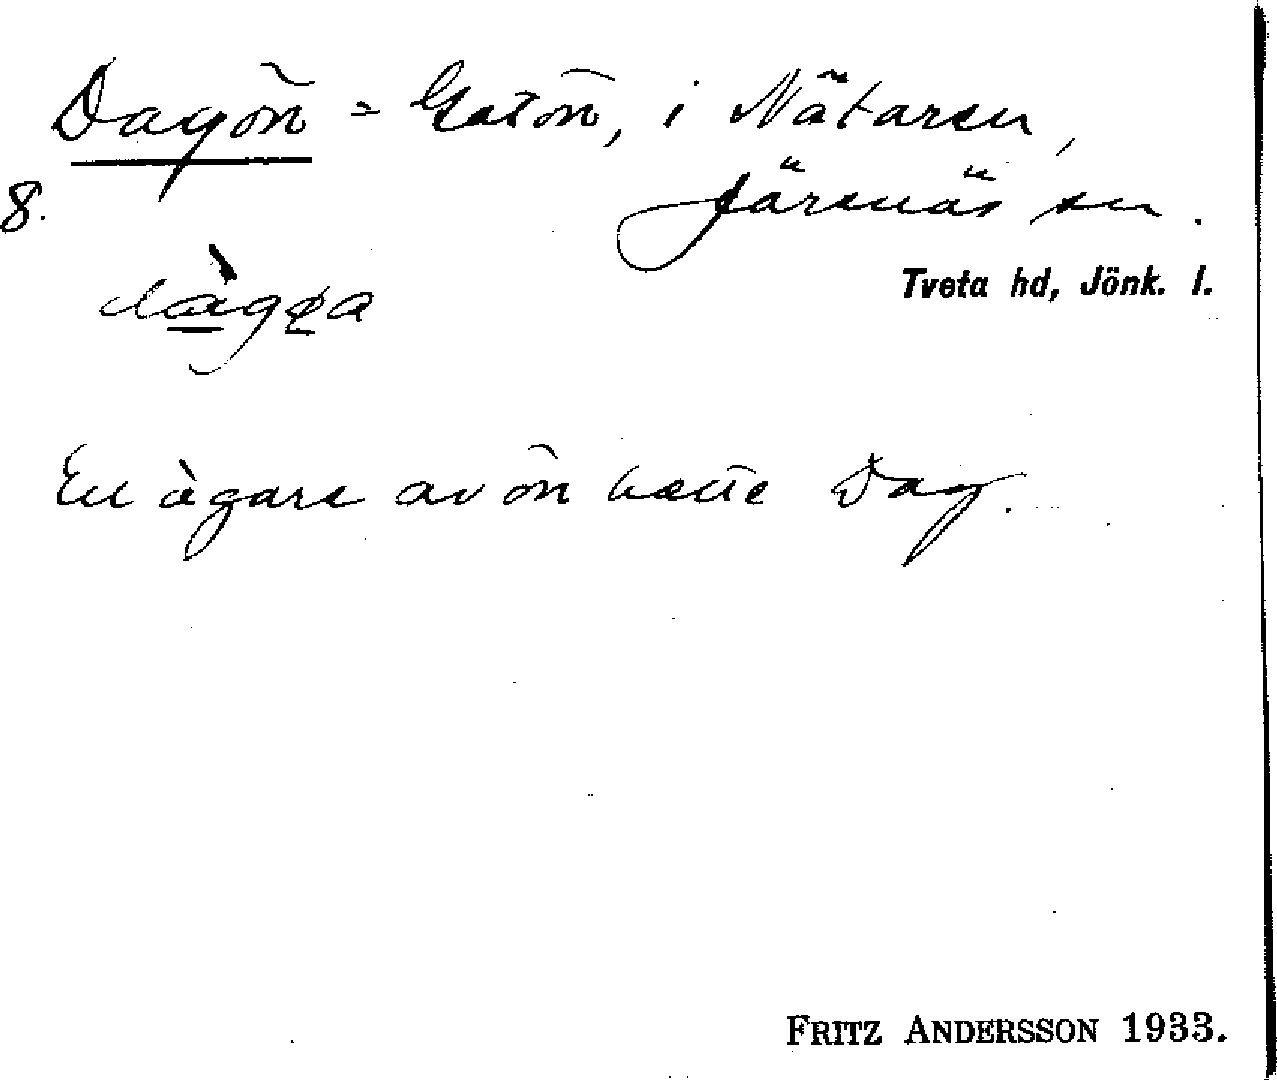 Dagön = Gatön, i Nätaren,
8.
Järsnäs sn.
Tveta hd, Jönk. l.
En ägare av ön hette Dag.
FRITZ ANDERSSON 1933.